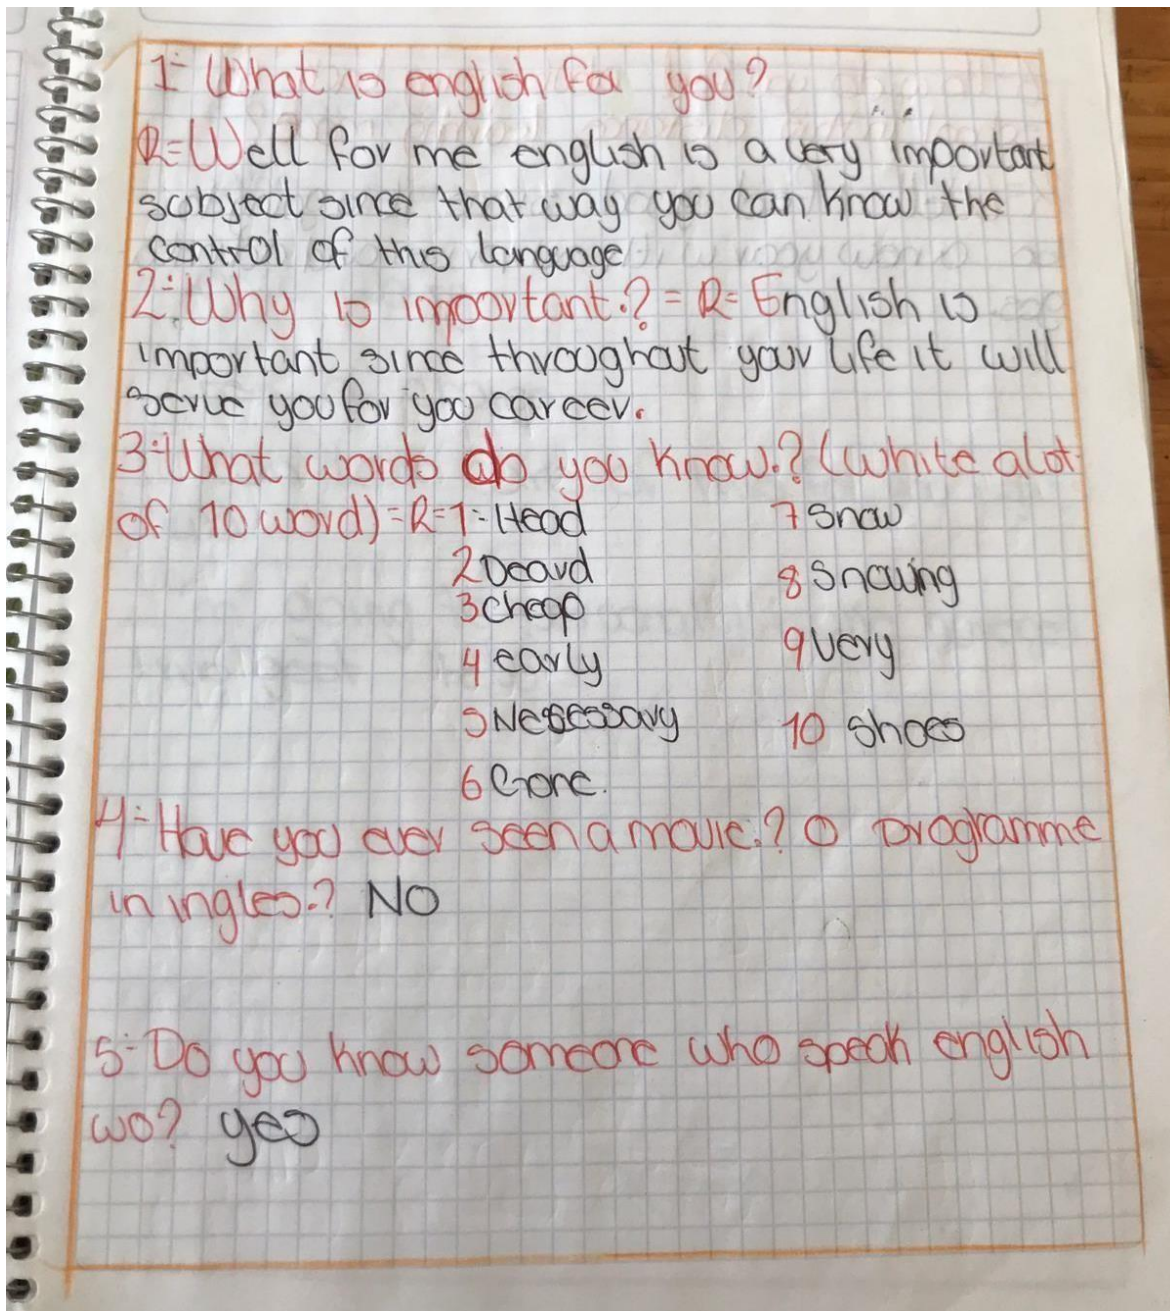 1- What is english for you?
R= Well for me english is a very important
subject since that way you can know the
control of this language
2- Why is important.? = R= English is
important since throughout your life it will
serve you for you career.
3- What words do you know.? (white alot
of 10 word) = R= 1- Head
7 Snow
2 Deard
8 Snowing
3 cheap
4 early
9 very
5 Nesessary
10 shoes
6 Gone.
4- Have you ever seen a movie.? O programme
in ingles.? NO
5- Do you know someone who speak english
wo? yes